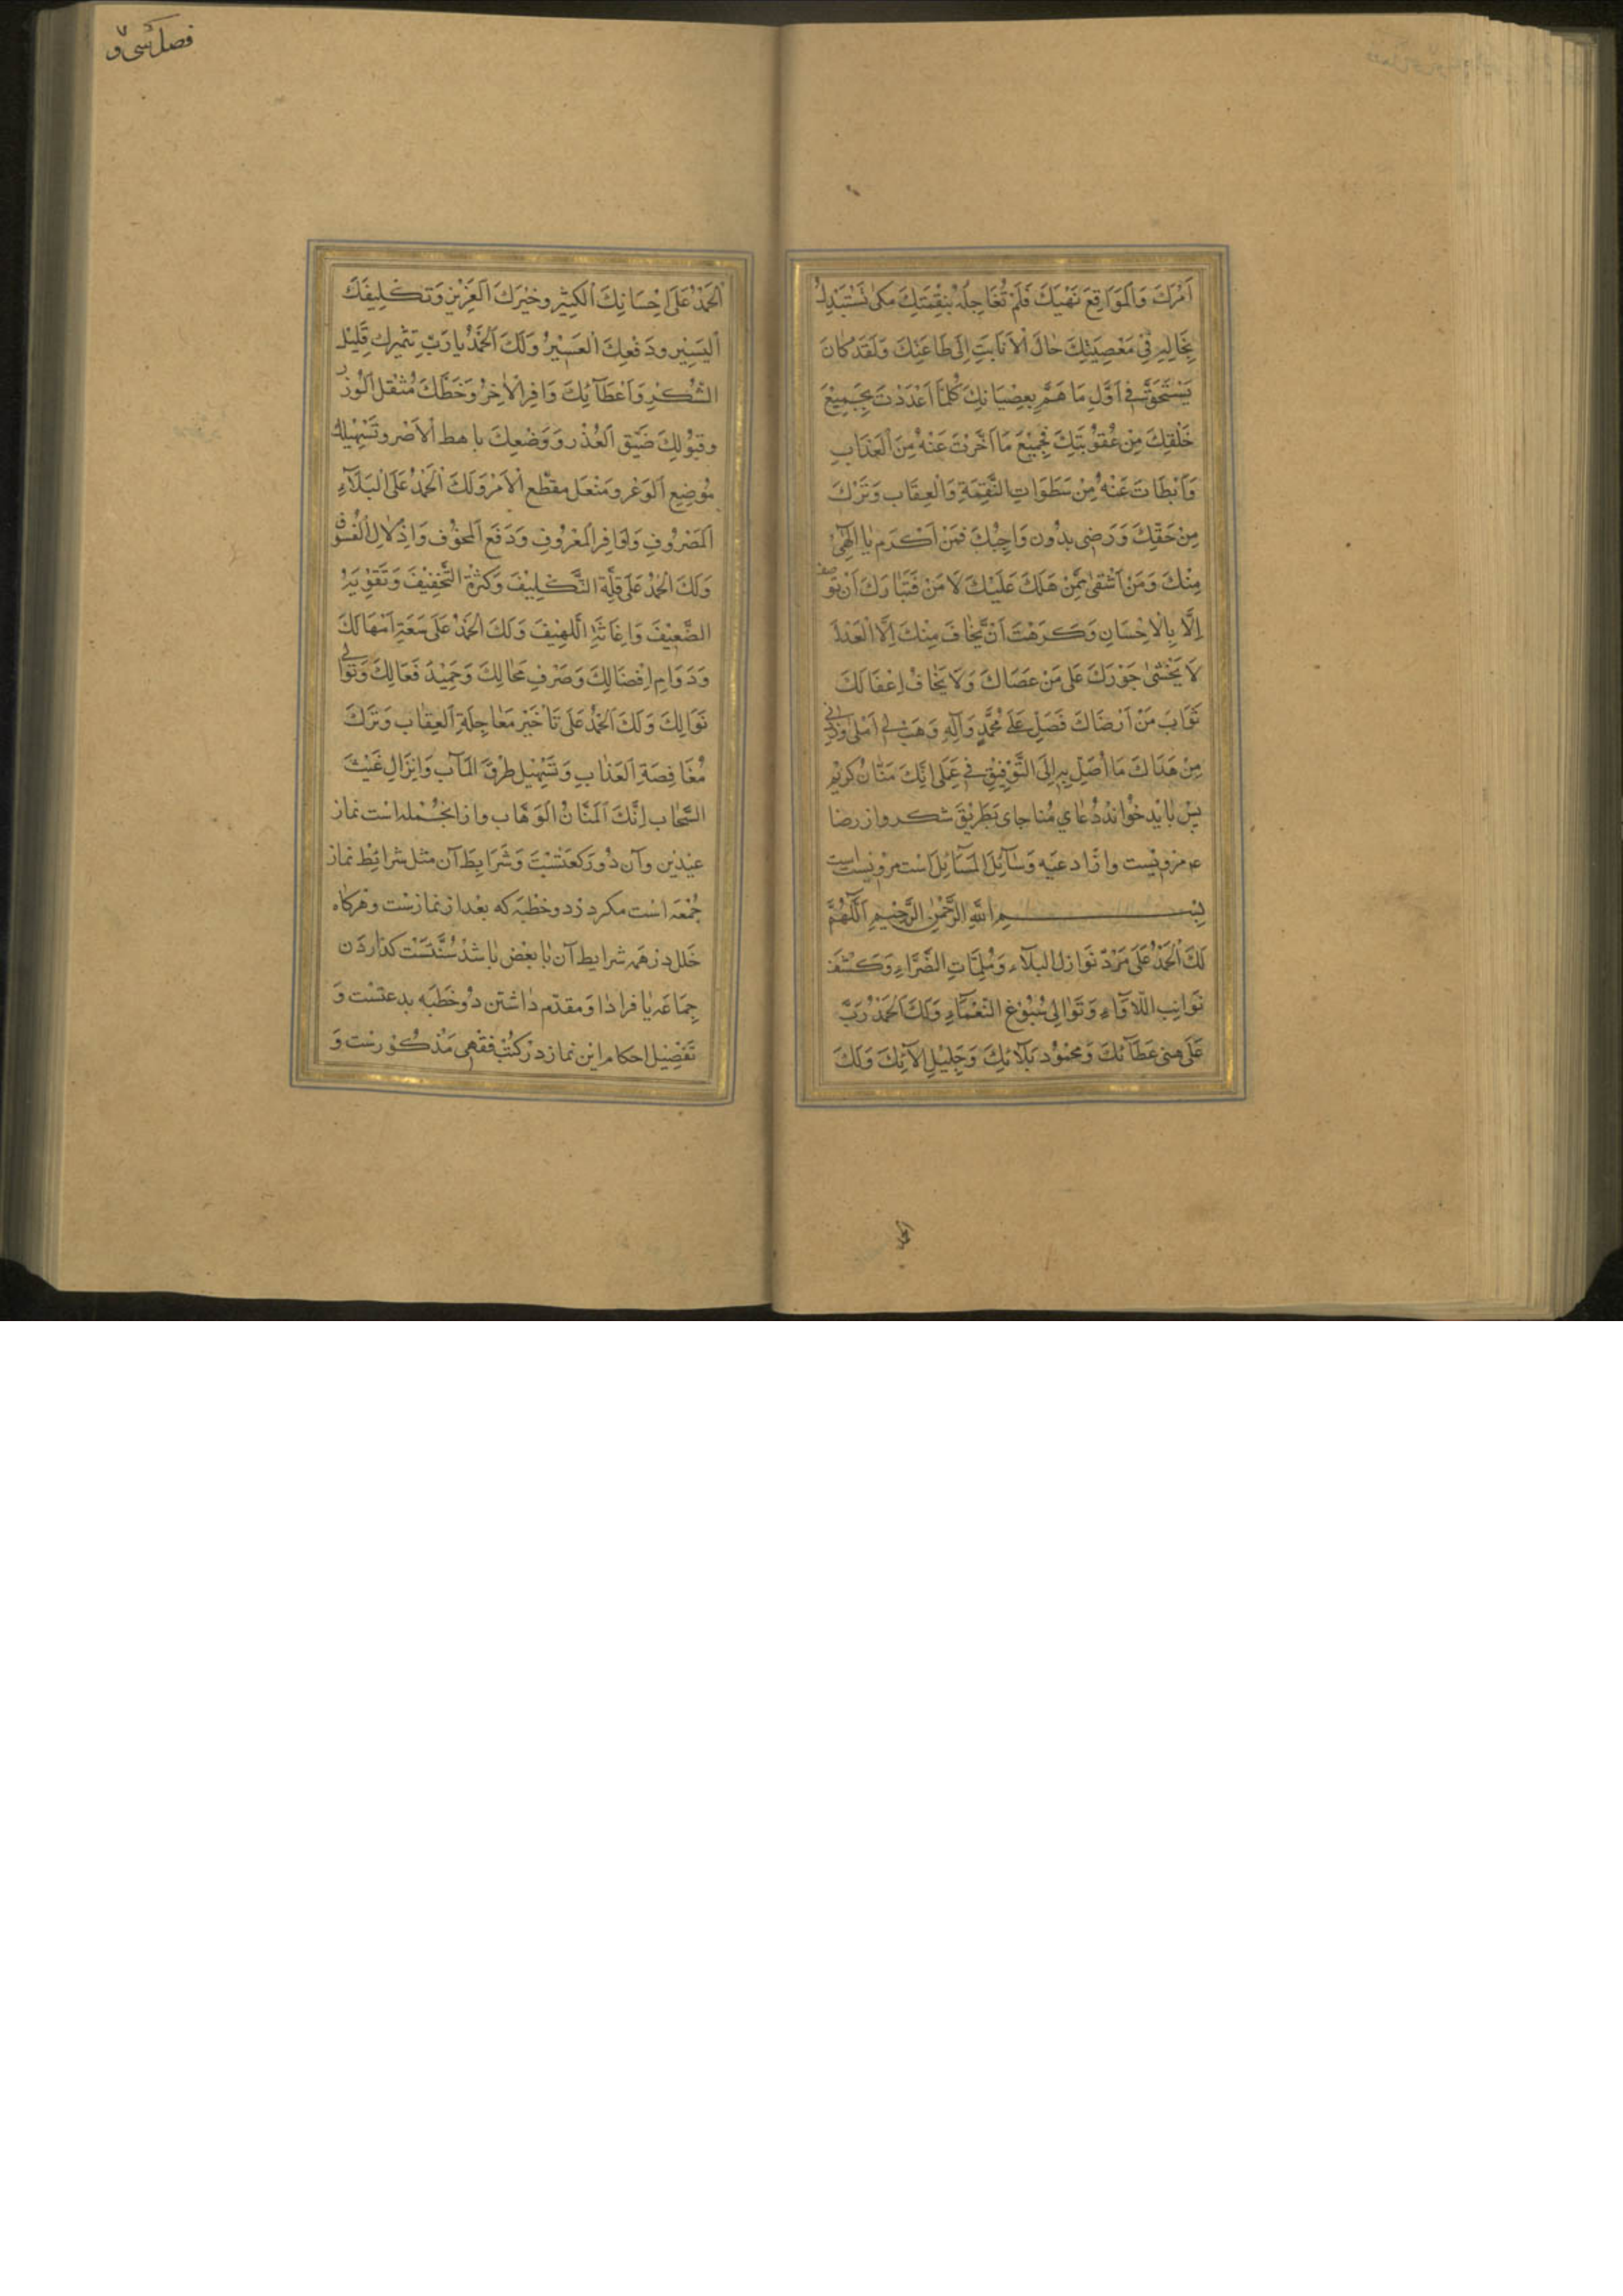 اَمْرَكَ وَالْمَوَاقِعَ نَهْيَكَ فَلَمْ تُعَاجِلْهُ بِنِقْمَتِكَ لِكَىْ يَسْتَبْدِلَ
بِحَالِهِ فِى مَعْصِيَتِكَ حَالَ الْاِنَابَةِ اِلَى طَاعَتِكَ وَلَقَدْ كَانَ
يَسْتَحِقُّ فِى اَوَّلِ مَا هَمَّ بِعِصْيَانِكَ كُلَّمَا اَعْدَدْتَ بِجَمِيْعِ
خَلْقِكَ مِنْ عُقُوْبَتِكَ فَجَمِيْعُ مَا اَخَّرْتَ عَنْهُ مِنَ الْعَذَابِ
وَاَبْطَاتَ عَنْهُ مِنْ سَطَوَاتِ النَّقِمَةِ وَالْعِقَابِ وَتَرْكَ
مِنْ حَقِّكَ وَرَضِى بِدُونِ وَاجِبِكَ فَمَنْ اَكْرَم يَا اِلٰهِىْ
مِنْكَ وَمَنْ اَشْقٰى مِمَّنْ هَلَكَ عَلَيْكَ لَا مَنْ فَتَبَارَكَ اَنْ تُوصف
اِلَّا بِالْاِحْسَانِ وَكَرُهْتَ اَنْ يُخَافَ مِنْكَ اِلَّا الْعَدْلَ
لَا يَخْشٰى جَوْرَكَ عَلَى مَنْ عَصَاكَ وَلَا يَخَافُ اِغْفَالَكَ
ثَوَابَ مَنْ اَرْضَاكَ فَصَلِّ عَلَى مُحَمَّدٍ وَآلِهِ وَهَبْ لِى اَمَلِى وَزِدْنِى
مِنْ هَدَاكَ مَا اَصِلُ بِهِ اِلَى التَّوْفِيْقِ فِى عَمَلِى اِنَّكَ مَنَّانٌ كَرِيْم
پس بايد خواند دعاى مناجاى بطريق شكر و از رضا
ع مرويست و از ادعيه وسآئل المسآئل است مرويست است
بِسْمِ اللهِ الرَّحْمٰنِ الرَّحِيْمِ اَللّٰهُمَّ
لَكَ الْحَمْدُ عَلَى مَرَدِّ نَوَازِلِ الْبَلَآءِ وَمُلِمَّاتِ الضَّرَّاءِ وَكَشْفِ
نَوَائِبِ اللَّاوَآءِ وَتَوَالِى سُبُوْغِ النَّعْمَآءِ وَلَكَ الْحَمْدُ رَبِّ
عَلَى هَنِىءِ عَطَآئِكَ وَمَحْمُوْدِ بَلَائِكَ وَجَلِيْلِ اٰلَآئِكَ وَلَكَ
فصل سى و
اَلْحَمْدُ عَلَى اِحْسَانِكَ الْكَثِيْرِ وَخَيْرِكَ الْعَزِيْزِ وَتَكْلِيْفِكَ
الْيَسِيْرِ وَدَفْعِكَ الْعَسِيْرَ وَلَكَ الْحَمْدُ يَا رَبِّ تَثْمِيرِكَ قَلِيْلَ
الشُّكْرِ وَاَعْطَآئِكَ وَافِرَ الْاَجْرِ وَحَطِّكَ مُثْقَلَ الْوِزْر
وَقَبُوْلِكَ ضَيِّقَ الْعُذْرِ وَوَضْعِكَ باهظ الْاَصْرِ وَتَسْهِيْلِكَ
مُوضِعَ الْوَعْرِ وَمَنْعَكَ مفظع الْاَمْرِ وَلَكَ الْحَمْدُ عَلَى الْبَلَآءِ
الْمَصْرُوفِ وَالْوَافِرِ الْمَعْرُوفِ وَدَفْعِ الْمَخُوْفِ وَاِذْلَالِ الْعُسُوف
وَلَكَ الْحَمْدُ عَلَى قِلَّةِ التَّكْلِيْفِ وَكَثْرَةِ التَّخْفِيْفِ وَتَقْوِيَةِ
الضَّعِيْفِ وَاِغَاثَةِ اللَّهِيْفِ وَلَكَ الْحَمْدُ عَلَى سَعَةِ اِمْهَالِكَ
وَدَوَامِ اِفْضَالِكَ وَصَرْفِ مَحَالِكَ وَحَمِيْدِ فَعَالِكَ وَتَوَالِى
نَوَالِكَ وَلَكَ الْحَمْدُ عَلَى تَاْخِيْرِ مُعَاجِلَةِ الْعِقَابِ وَتَرْكِ
مُغَافِصَةِ الْعَذَابِ وَتَسْهِيْلِ طُرُقِ الْمَآبِ وَاِنْزَالِ غَيْثِ
السَّحَابِ اِنَّكَ الْمَنَّانُ الْوَهَّابُ و ازانجمله است نماز
عيدين و آن دو ركعتست وشرايط آن مثل شرائط نماز
جمعه است مكر در دو خطبه كه بعد از نمازست و هركاه
خلل در همه شرايط آن يا بعض باشد سنتست كذاردن
جماعه يا فرادا و مقدم داشتن دو خطبه بدعتست و
تفضيل احكام اين نماز در كتب فقهى مذكورست و
الحمد